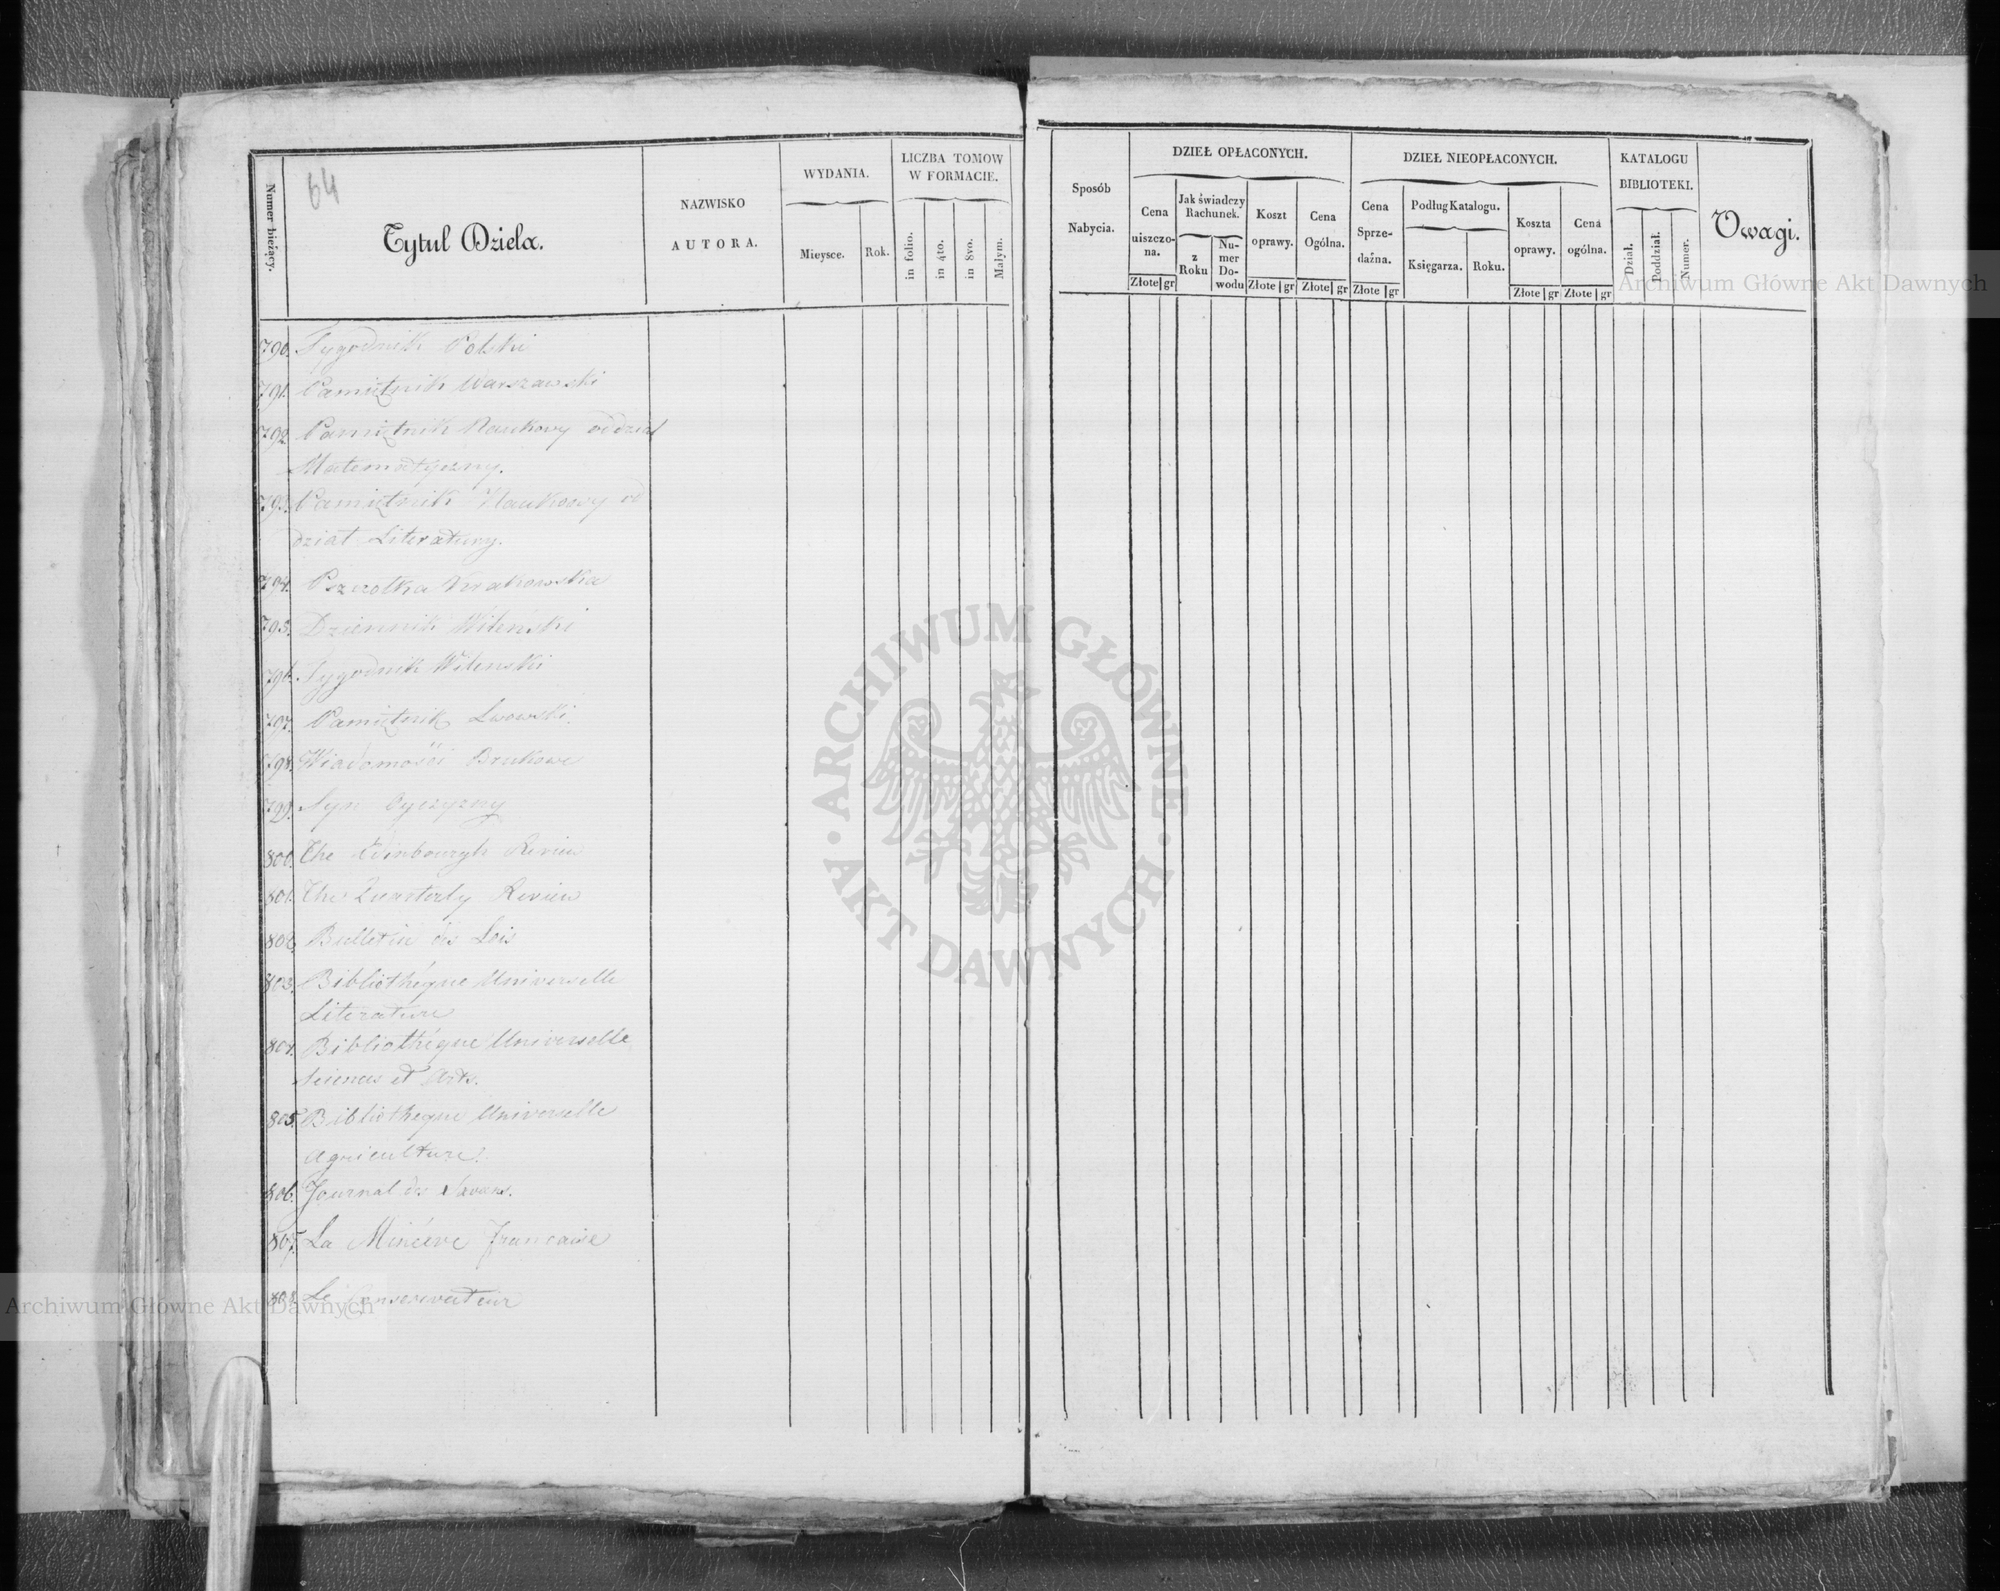 64
Numer bieżący.
Tytuł Dzieła.
NAZWISKO
AUTORA.
WYDANIA.
Mieysce.
Rok.
LICZBA TOMOW
W FORMACIE.
in folio.
in 4to.
in 8vo.
Małym.
Sposób
Nabycia.
DZIEŁ OPŁACONYCH.
Cena
uiszczo-
na.
Złote gr
Jak świadczy
Rachunek.
z
Roku
Nu-
mer
Do-
wodu
Koszt
oprawy.
Złote gr
Cena
Ogólna.
Złote gr
DZIEŁ NIEOPŁACONYCH.
Cena
Sprze-
daźna.
Złote gr
Podług Katalogu.
Księgarza.
Roku.
Koszta
oprawy.
Złote gr
Cena
ogólna.
Złote gr
KATALOGU
BIBLIOTEKI.
Dział.
Poddział.
Numer.
Uwagi.
790. Tygodnik Polski
791. Pamiętnik Warszawski
792. Pamiętnik Naukowy oddział
Matematyczny.
793. Pamiętnik Naukowy od
dział Literatury.
794. Pszczołka Krakowska
795. Dziennik Wileński
796. Tygodnik Wilenski
797. Pamiętnik Lwowski.
798. Wiadomości Brukowe
799. Syn Oyczyzny
800. The Edinbourgh Review
801. The Quarterly Review
802. Bulletin des Lois
803. Bibliothéque Universelle
Literature
804. Bibliothéque Universelle
Sciences et Arts.
805. Bibliothéque Universelle
Agriculture.
806. Journal des Savans.
807. La Minérve francaise
808. Le Conservateur
Archiwum Główne Akt Dawnych
ARCHIWUM GŁÓWNE · AKT DAWNYCH ·
Archiwum Główne Akt Dawnych